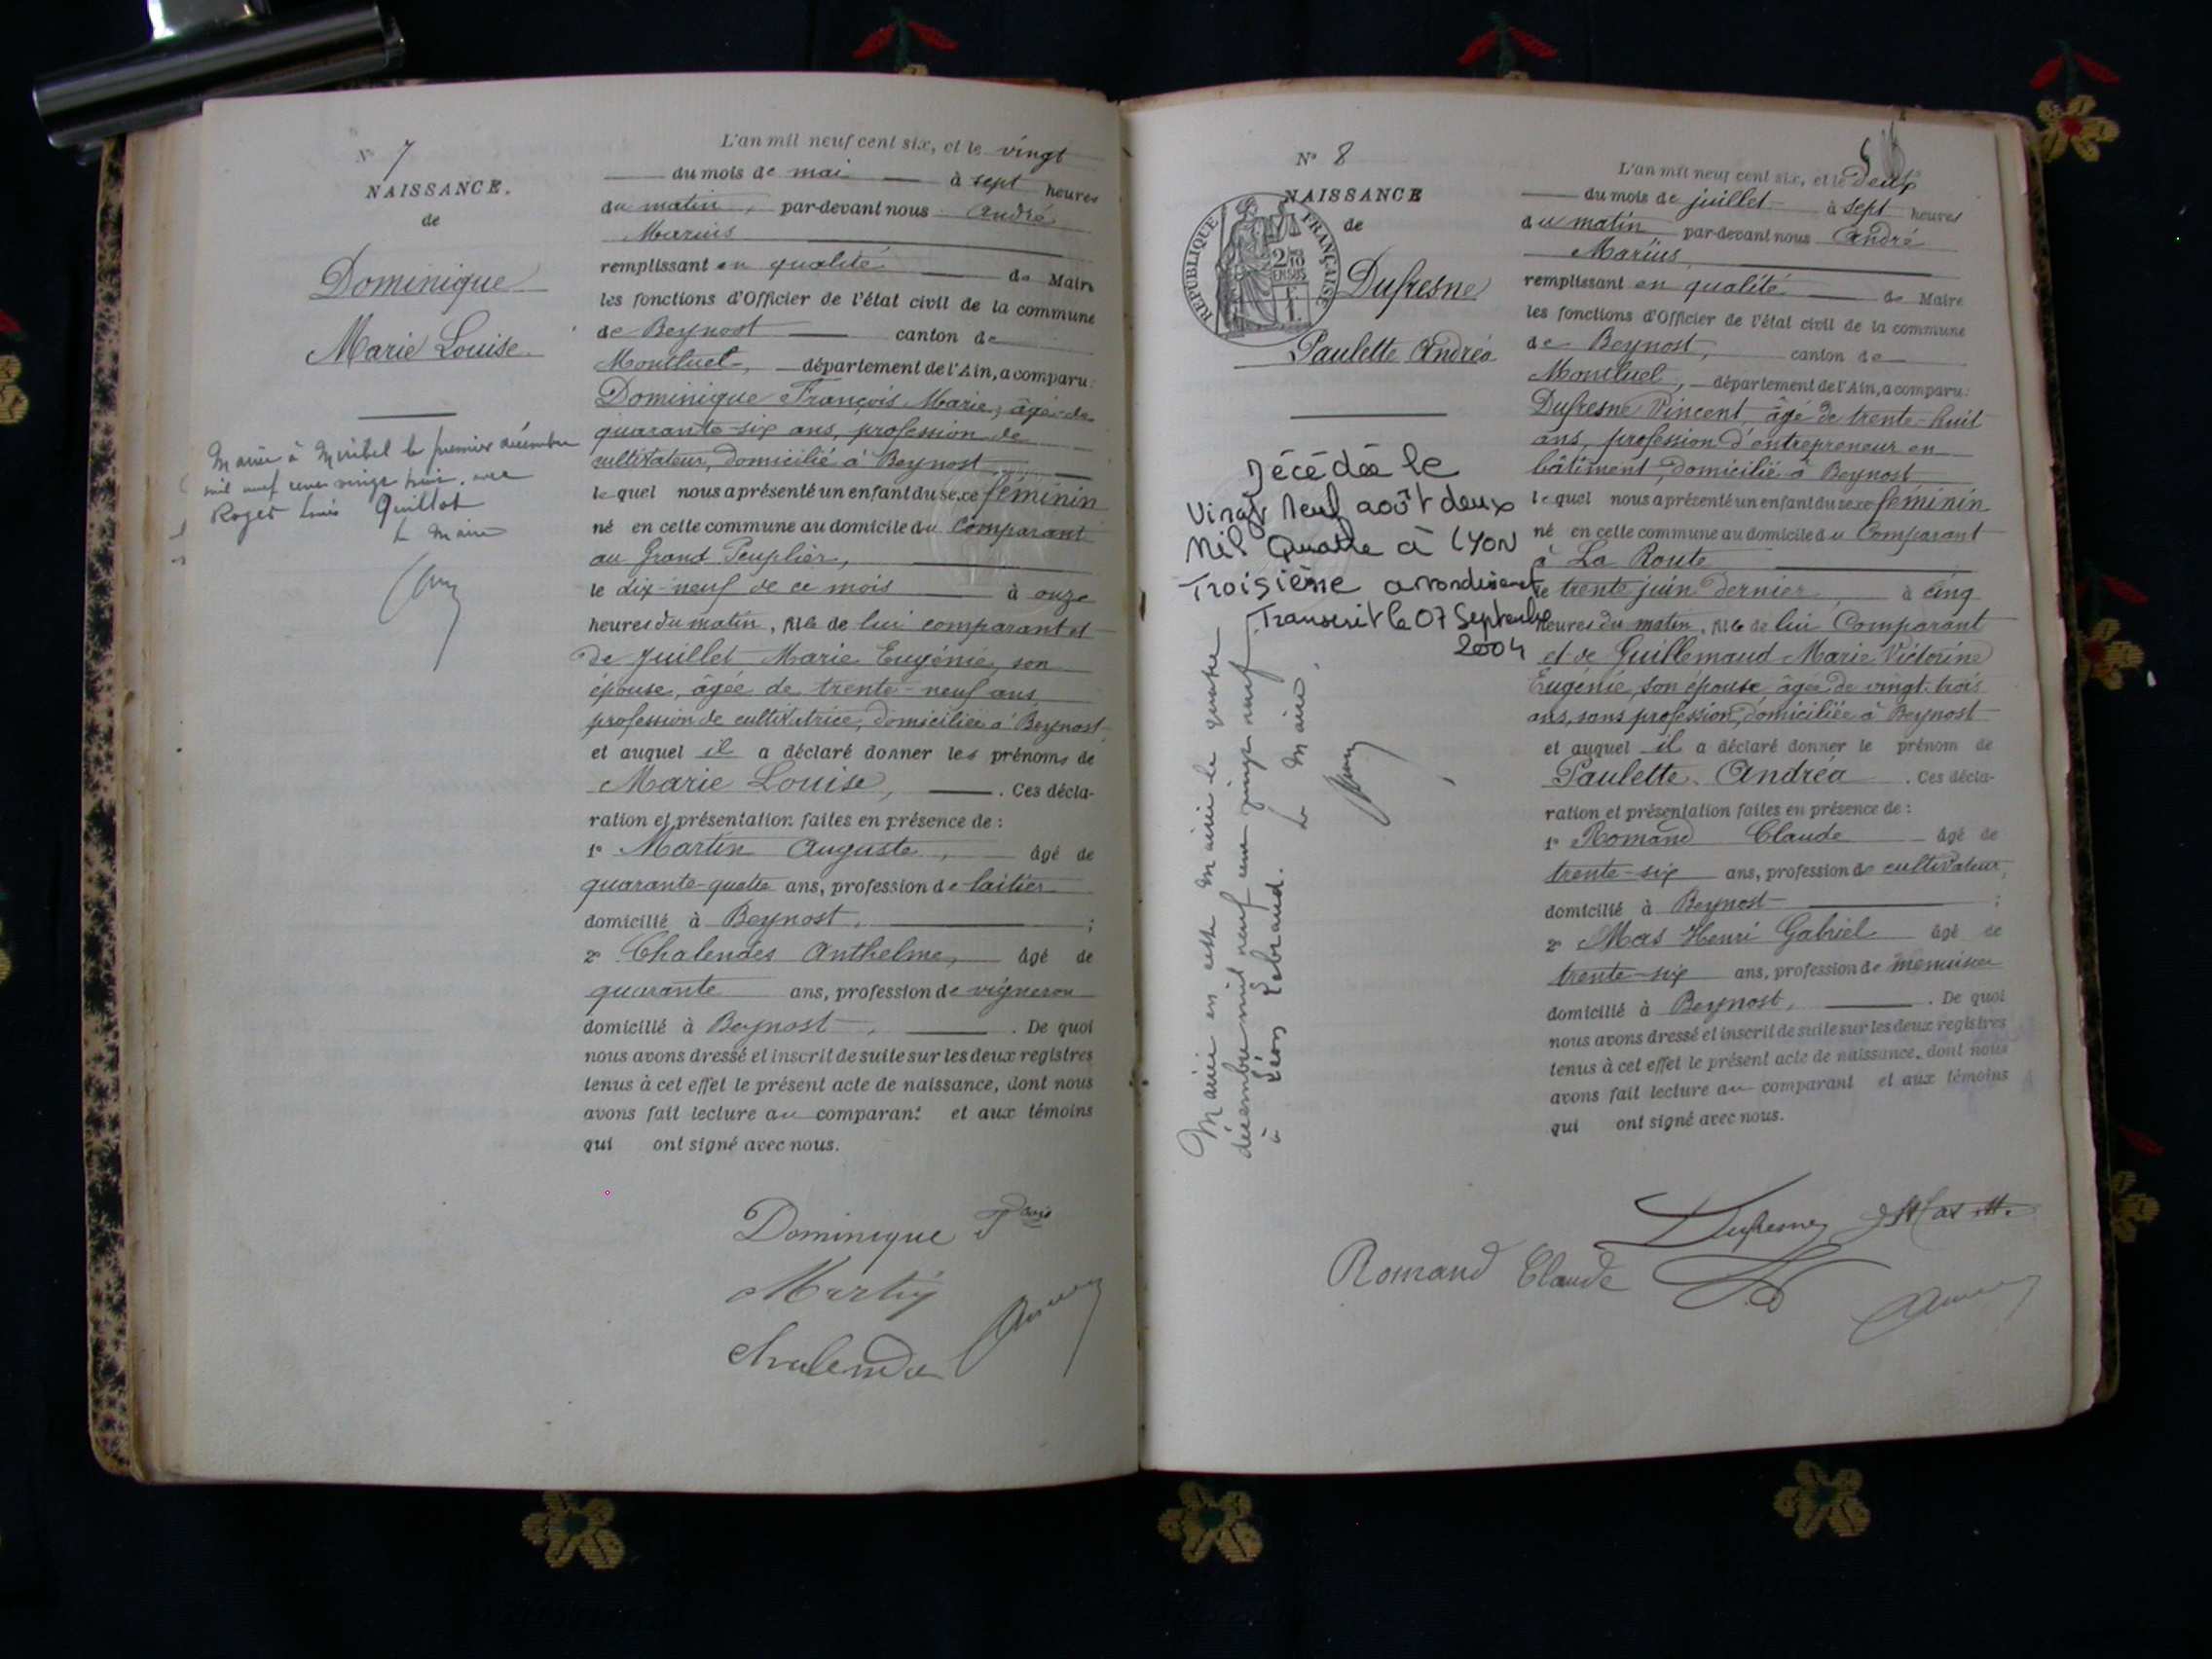 N° 7
NAISSANCE.
de
Dominique
Marie Louise.
Mariée à Miribel le premier décembre
mil neuf cent vingt trois, avec
Roger Louis Guillot
Le Maire
L'an mil neuf cent six, et le vingt
du mois de mai à sept heures
du matin, par-devant nous André
Marius
remplissant en qualité de Maire
les fonctions d'Officier de l'état civil de la commune
de Beynost canton de
Montluel, département de l'Ain, a comparu:
Dominique François Marie, âgé de
quarante-six ans, profession de
cultivateur, domicilié à Beynost
lequel nous a présenté un enfant du sexe féminin
né en cette commune au domicile du Comparant
au Grand Peuplier,
le dix-neuf de ce mois à onze
heures du matin, fille de lui comparant et
de Juillet Marie Eugénie, son
épouse, âgée de trente-neuf ans,
profession de cultivatrice, domiciliée à Beynost
et auquel il a déclaré donner les prénoms de
Marie Louise, . Ces décla-
ration et présentation faites en présence de :
1° Martin Auguste, âgé de
quarante-quatre ans, profession de laitier
domicilié à Beynost, ;
2° Chalendes Anthelme, âgé de
quarante ans, profession de vigneron
domicilié à Beynost, . De quoi
nous avons dressé et inscrit de suite sur les deux registres
tenus à cet effet le présent acte de naissance, dont nous
avons fait lecture au comparant et aux témoins
qui ont signé avec nous.
Dominique Fçois
Martin
N° 8
NAISSANCE
de
RÉPUBLIQUE FRANÇAISE
2/10 EN SUS
Dufresne
Paulette Andréa
Décédée le
Vingt Neuf août deux
Mil Quatre à LYON
Troisième arrondissement
Transcrit le 07 Septembre
2004
Mariée en cette mairie le quatre
décembre mil neuf cent vingt neuf
à Léon Lebrand. Le Maire.
L'an mil neuf cent six, et le deux
du mois de juillet à sept heures
du matin par-devant nous André
Marius
remplissant en qualité de Maire
les fonctions d'Officier de l'état civil de la commune
de Beynost, canton de
Montluel, département de l'Ain, a comparu:
Dufresne Vincent, âgé de trente-huit
ans, profession d'entrepreneur en
bâtiment, domicilié à Beynost
lequel nous a présenté un enfant du sexe féminin
né en cette commune au domicile du Comparant
à La Route
le trente juin dernier, à cinq
heures du matin, fille de lui Comparant
et de Guillemaud Marie Victorine
Eugénie, son épouse, âgée de vingt-trois
ans, sans profession, domiciliée à Beynost
et auquel il a déclaré donner le prénom de
Paulette Andréa . Ces décla-
ration et présentation faites en présence de :
1° Romand Claude âgé de
trente-six ans, profession de cultivateur,
domicilié à Beynost ;
2° Mas Henri Gabriel âgé de
trente-six ans, profession de menuisier
domicilié à Beynost, . De quoi
nous avons dressé et inscrit de suite sur les deux registres
tenus à cet effet le présent acte de naissance, dont nous
avons fait lecture au comparant et aux témoins
qui ont signé avec nous.
Dufresne
Romand Claude